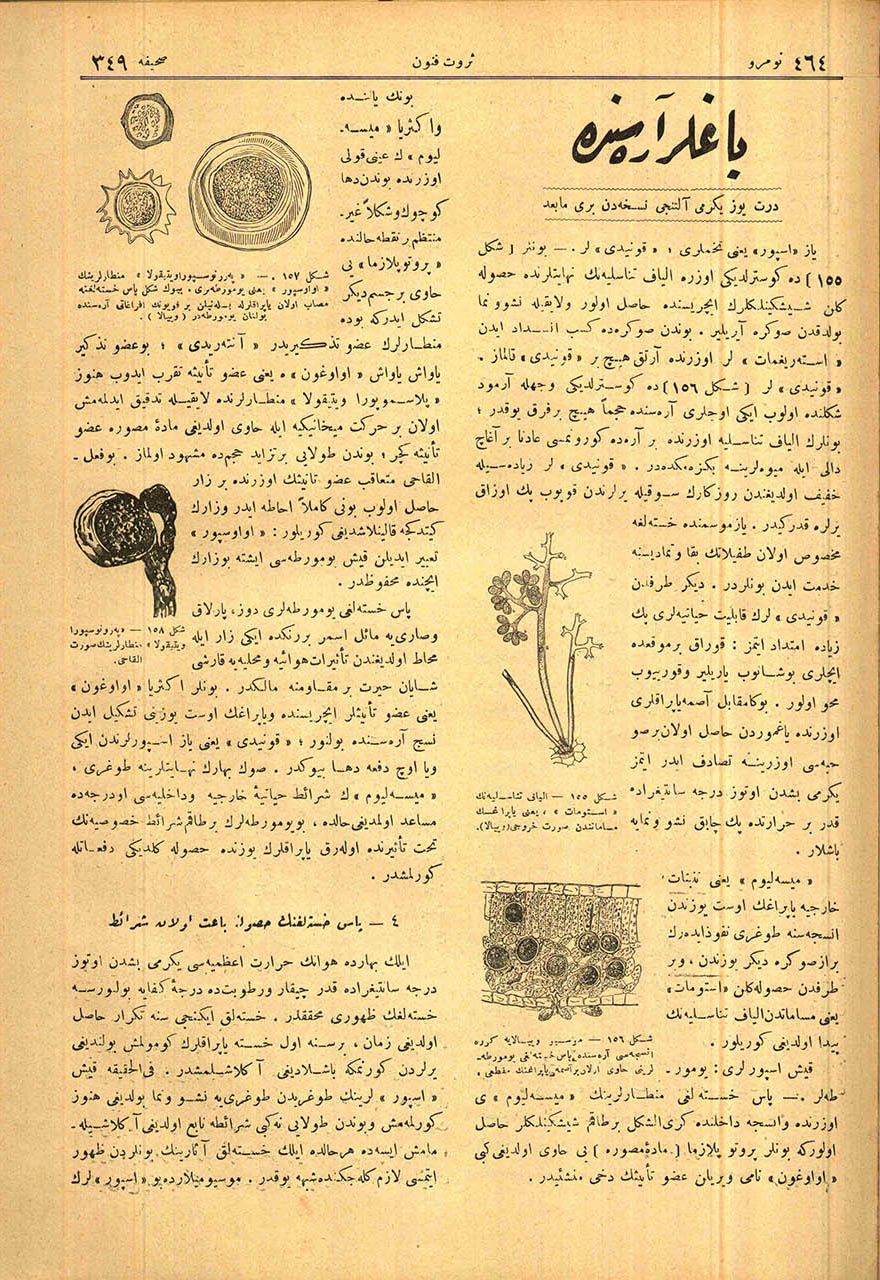 ٤٦٤ نومرو
ثروت فنون
صحیفه ٣٤٩
باغلر آره‌سنده
درت یوز یکرمی آلتنجی نسخه‌دن بری مابعد
یاز «اسپور» یعنی تخملری ؛ «قونیدی» لر — بونلر [ شکل
١٥٥ ] ده کوسترلدیکی اوزره الیاف تناسلیه‌نك نهایتلرنده حصوله
کان شیشکینلکلرك ایچریسنده حاصل اولور ولایقیله نشوو نما
بولدقدن صوکره آیریلیر . بوندن صوکره‌ده کسب انسداد ایدن
« استه‌ریغمات » لر اوزرنده آرتق هیچ بر « قونیدی » قالماز .
« قونیدی » لر [ شکل ١٥٦ ] ده کوسترلدیکی وجهله آرمود
شکلنده اولوب ایکی اوجلری آره‌سنده حجماً هیچ برفرق یوقدر ؛
بونلرك الیاف تناسلیه اوزرنده بر آره‌ده کورونمسی عادتا بر آغاج
دالی ایله میوه‌لرینه بکزه‌مکده‌در . « قونیدی » لر زیاده‌سیله
خفیف اولدیغندن روزکارك سوقیله یرلرندن قوپوب پك اوزاق
یرلره قدرکیدر . یازموسمنده خسته‌لغه
مخصوص اولان طفیلاتك بقا وتمادیسنه
خدمت ایدن بونلردر . دیکر طرفدن
« قونیدی » لرك قابلیت حیاتیه‌لری پك
زیاده امتداد ایتمز : قوراق برموقعده
ایچلری بوشانوب یاریلیر وقوریوب
محو اولور . بوکامقابل آصمه‌یاپراقلری
اوزرنده یاغموردن حاصل اولان‌برصو
حبه‌سی اوزرینه تصادف ایدر ایتمز
یکرمی بشدن اوتوز درجه سانتیغراده
قدر بر حرارتده پك چابق نشو ونمایه
باشلار .
شکل ١٥٥ — الیافی تناسلیه‌نك
« استومات » ، یعنی یاپراغك
مساماتندن صورت خروجی (وییالا).
« میسه‌لیوم » یعنی نبتات
خارجیه یاپراغك اوست یوزندن
انسجه‌سنه طوغری نفوذایده‌رك
برازصوکره دیکر یوزندن ، وبر
طرفدن حصوله‌کان «استومات»
یعنی مساماتدن‌الیاف تناسلیه‌نك
پیدا اولدیغی کوریلور .
شکل ١٥٦ — موسیو وییالایه کوره
انسجه‌سی آره‌سنده پاس خسته‌لغی یومورطه‌-
لرینی حاوی اولان برآصمه یاپراغنك مقطعی .
قیش اسپورلری : یومور-
طه‌لر — پاس خسته‌لغی منطارلرینك « میسه‌لیوم » ی
اوزرنده وانسجه داخلنده کری‌الشکل برطاقم شیشکنلکلر حاصل
اولورکه بونلر پروتو پلازما (مادهٔ‌مصوره) یی حاوی اولدیغی کبی
« اواوغون » نامی ویریلان عضو تأنیثك دخی منشئیدر .
بونك یاننده
واکثریا « میسه‌-
لیوم » ك عینی‌قولی
اوزرنده بوندن‌دها
کوچوك وشکلاً غیر-
منتظم‌رنقطه‌حالنده
« پروتوپلازما » یی
حاوی برجسم‌دیکر
تشکل ایدرکه بوده
شکل ١٥٧ — « په‌رونوسپورا ویتیقولا » منطارلرینك
« اواوسپور » یعنی یومورطه‌لری . بیوك شکل پاس خسته‌لغنه
مصاب اولان یاپراقلرله بسله‌نیلن بر قویونك افراغاتی آره‌سنده
بولنان یومورطه‌در ( وییالا ) .
منطارلرك عضو تذکیریدر « آنته‌ریدی » ؛ بوعضو تذکیر
یاواش یاواش « اواوغون » ه یعنی عضو تأنیثه تقرب ایدوب هنوز
« پلاسموپورا ویتیقولا » منطارلرنده لایقیله تدقیق ایدلمه‌مش
اولان بر حرکت میخانیکیه ایله حاوی اولدیغی مادهٔ مصوره عضو
تأنیثه کچر ؛ بوندن طولایی برتزاید حجم‌ده مشهود اولماز . بوفعل-
القاحی متعاقب عضو تأنیثك اوزرنده بر زار
حاصل اولوب بونی کاملاً احاطه ایدر وزارك
کیتدکجه قالینلاشدیغی کوریلور : « اواوسپور »
تعبیر ایدیلن قیش یومورطه‌سی ایشته بوزارك
ایچنده محفوظدر .
پاس خسته‌لغی یومورطه‌لری دوز، پارلاق
وصاری‌یه مائل اسمر بررنکده ایکی زار ایله
محاط اولدیغندن تأثیرات‌هوائیه ومحلیه‌یه قارشی
شکل ١٥٨ — «په‌رونوسپورا
ویتیقولا» منطارلرینك صورت
القاحی.
شایان حیرت برمقاومته مالکدر . بونلر اکثریا «اواوغون»
یعنی عضو تأنیثلر ایچریسنده ویاپراغك اوست یوزینی تشکیل ایدن
نسج آره‌سنده بولنور ؛ « قونیدی » یعنی یاز اسپورلرندن ایکی
ویا اوچ دفعه دها بیوکدر . صوك بهارك نهایتلرینه طوغری ،
« میسه‌لیوم » ك شرائط حیاتیهٔ خارجیه وداخلیه‌سی اودرجه‌ده
مساعد اولمدیغی‌حالده ، بویومورطه‌لرك برطاقم‌شرائط خصوصیه‌نك
تحت تأثیرنده اوله‌رق یاپراقلرك یوزنده حصوله کلدیکی دفعاتله
کورلمشدر .
٤ — پاس خسته‌لغنك حصولنه باعث اولان شرائط
ایلك بهارده هوانك حرارت اعظمیه‌سی یکرمی بشدن اوتوز
درجه سانتیغراده قدر چیقار ورطوبت‌ده درجهٔ کفایه بولورسه
خسته‌لغك ظهوری محققدر . خسته‌لق ایکنجی سنه تکرار حاصل
اولدیغی زمان ، برسنه اول خسته یاپراقلرك کومولمش بولندیغی
یرلردن کورنمکه باشلادیغی آکلاشلمشدر . فی‌الحقیقه قیش
« اسپور » لرینك طوغریدن طوغری‌یه نشو ونما بولدیغی هنوز
کورلمه‌مش وبوندن طولایی نه‌کبی شرائطه تابع اولدیغی آکلاشیله-
مامش ایسه‌ده هرحالده ایلك خسته‌لق آثارینك بونلردن ظهور
ایتمسی لازم کله‌جکنده‌شبهه یوقدر . موسیومیلارده‌بو «اسپور» لرك